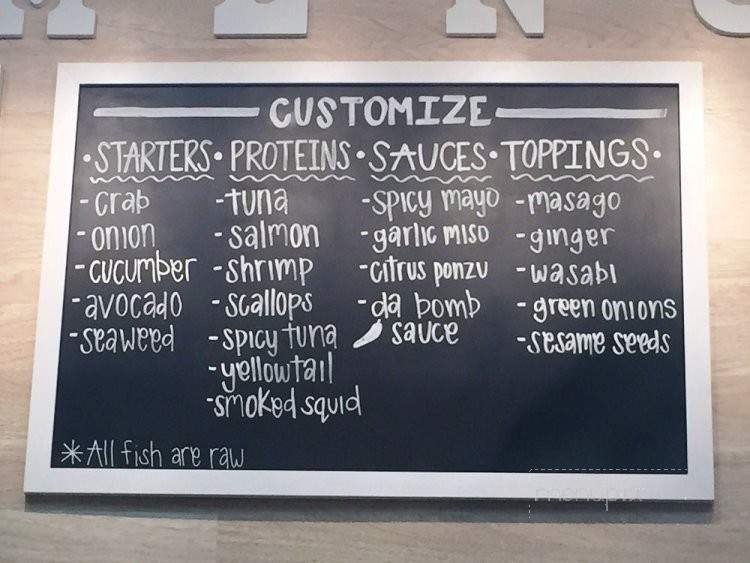 CUSTOMIZE
•STARTERS• PROTEINS•SAUCES•TOPPINGS•
-crab
-onion
-cucumber
-avocado
-seaweed
-tuna
-salmon
-shrimp
-scallops
-spicy tuna
-yellowtail
-smoked squid
-spicy mayo
-garlic miso
-citrus ponzu
-da bomb
sauce
-masago
-ginger
-wasabi
-green onions
-sesame seeds
*All fish are raw